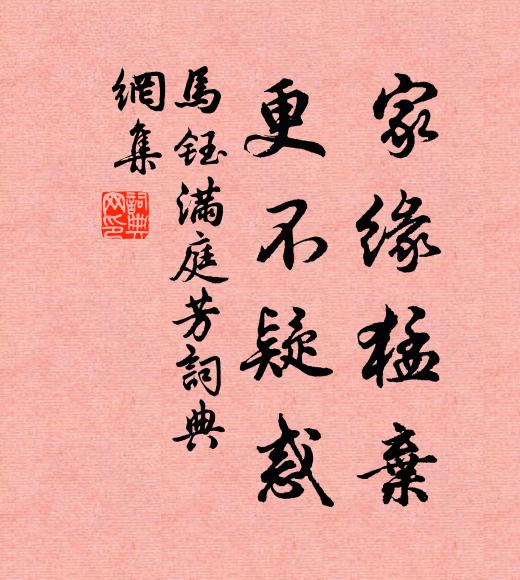 家緣猛棄
更不疑惑
馬鈺滿庭芳詞典
網集
詞典網印